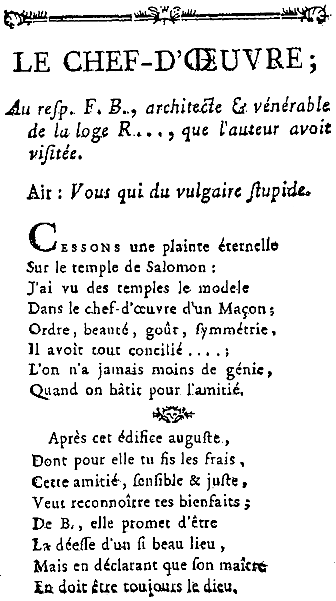 LE CHEF-D'ŒUVRE;
Au reſp. F. B.., architecte & vénérable
de la loge R...., que l'auteur avoit
viſitée.
Air : Vous qui du vulgaire ſtupide.
CESSONS une plainte éternelle
Sur le temple de Salomon :
J'ai vu des temples le modele
Dans le chef-d'œuvre d'un Maçon;
Ordre, beauté, goût, ſymmétrie,
Il avoit tout concilié ....;
L'on n'a jamais moins de génie,
Quand on bâtit pour l'amitié.
Après cet édifice auguſte,
Dont pour elle tu fis les frais,
Cette amitié, ſenſible & juſte,
Veut reconnoître tes bienfaits;
De B., elle promet d'être
La déeſſe d'un ſi beau lieu,
Mais en déclarant que ſon maître
En doit être toujours le dieu.